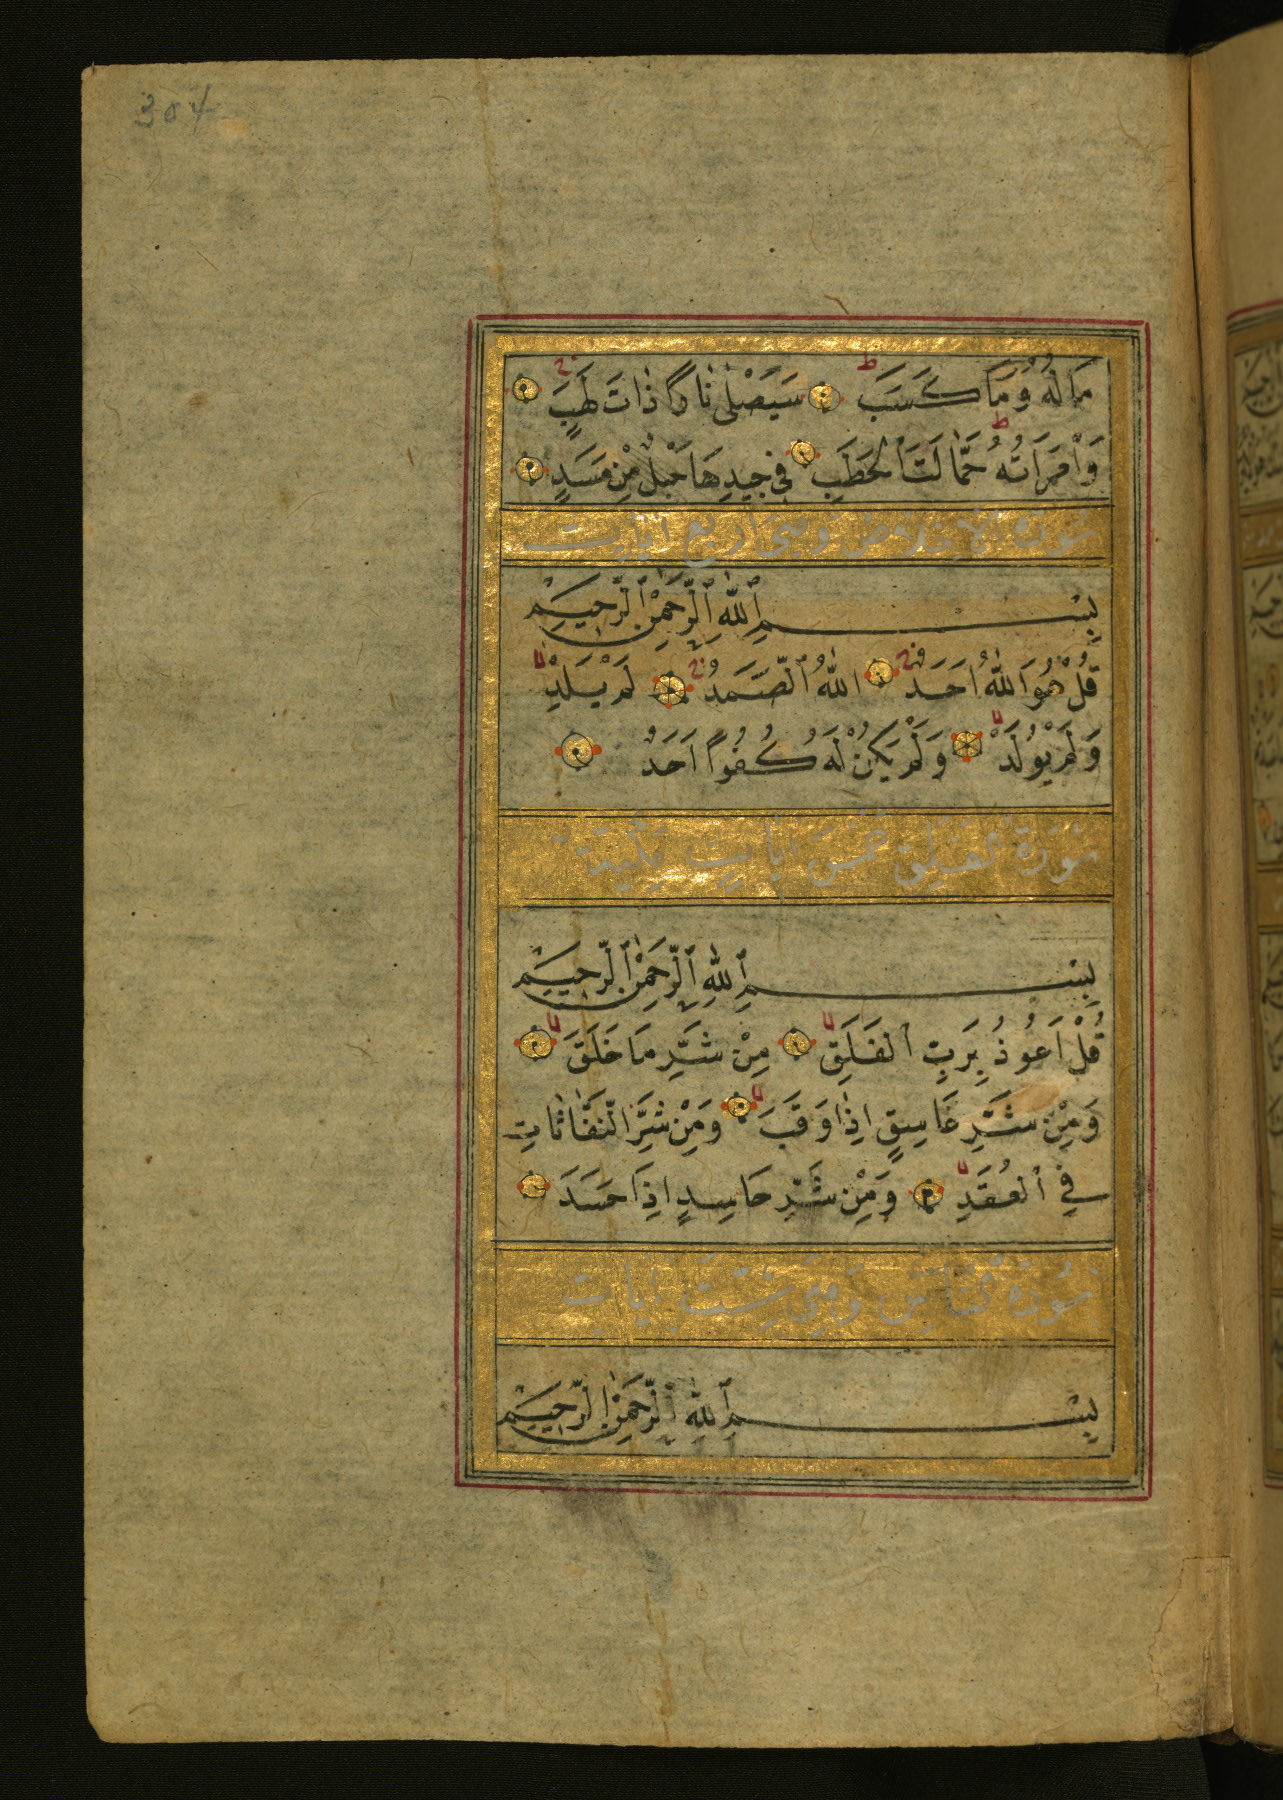 304
مَا لُهُ وَمَا كَسَبَ سَيَصْلٰى نَارًا ذَاتَ لَهَبٍ
وَامْرَاَتُهُ حَمَّالَتَ الْحَطَبِ فِي جِيدِهَا حَبْلٌ مِنْ مَسَدٍ
سورة الاخلاص وهي اربع ايات
بِسْمِ ٱللّٰهِ ٱلرَّحْمٰنِ ٱلرَّحِيمِ
قُلْ هُوَ اللّٰهُ اَحَدٌ اَللّٰهُ ٱلصَّمَدُ لَمْ يَلِدْ
وَلَمْ يُولَدْ وَلَمْ يَكُنْ لَهُ كُفُوًا اَحَدٌ
سورة الفلق خمس ايات مكية
بِسْمِ ٱللّٰهِ ٱلرَّحْمٰنِ ٱلرَّحِيمِ
قُلْ اَعُوذُ بِرَبِّ ٱلْفَلَقِ مِنْ شَرِّ مَا خَلَقَ
وَمِنْ شَرِّ غَاسِقٍ اِذَا وَقَبَ وَمِنْ شَرِّ النَّفَّاثَاتِ
فِي ٱلْعُقَدِ وَمِنْ شَرِّ حَاسِدٍ اِذَا حَسَدَ
سورة الناس وهي ست ايات
بِسْمِ ٱللّٰهِ ٱلرَّحْمٰنِ ٱلرَّحِيمِ